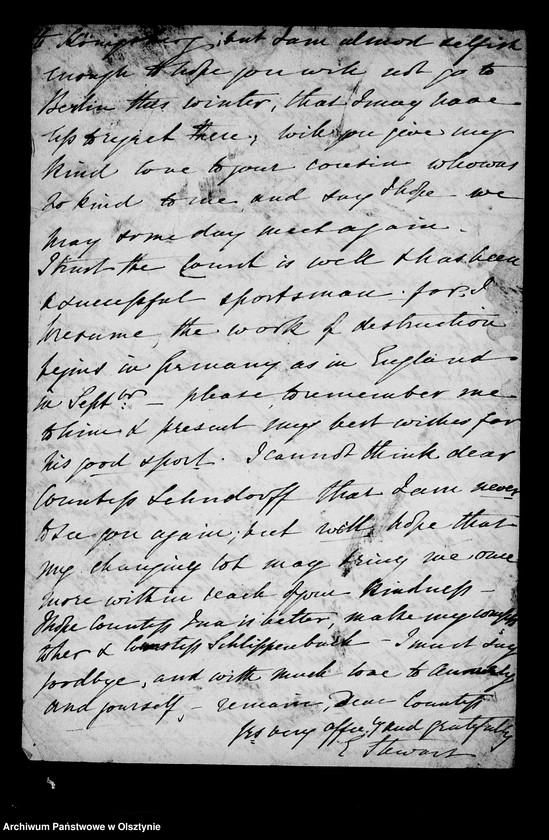 to Königsberg; but I am almost selfish
enough to hope you will not go to
Berlin this winter, that I may have
less to regret there; will you give my
kind love to your cousin who was
so kind to me and say I hope we
may some day meet again.
I trust the Count is well & has been
a successful sportsman. for I
presume, the work of destruction
begins in Germany as in England
in Septbr. – please to remember me
to him & present my best wishes for
his good sport. I cannot think dear
Countess Lehndorff that I am never
to see you again; but will hope that
my changing lot may bring me once
more within reach of your kindness –
I hope Countess Ina is better, make my
to her & Countess Schlippenbach – I must say
goodbye, and with much love to
and yourself – remain, Dear Countess
yrs very affecly and gratefully
E Stewart
Archiwum Państwowe w Olsztynie